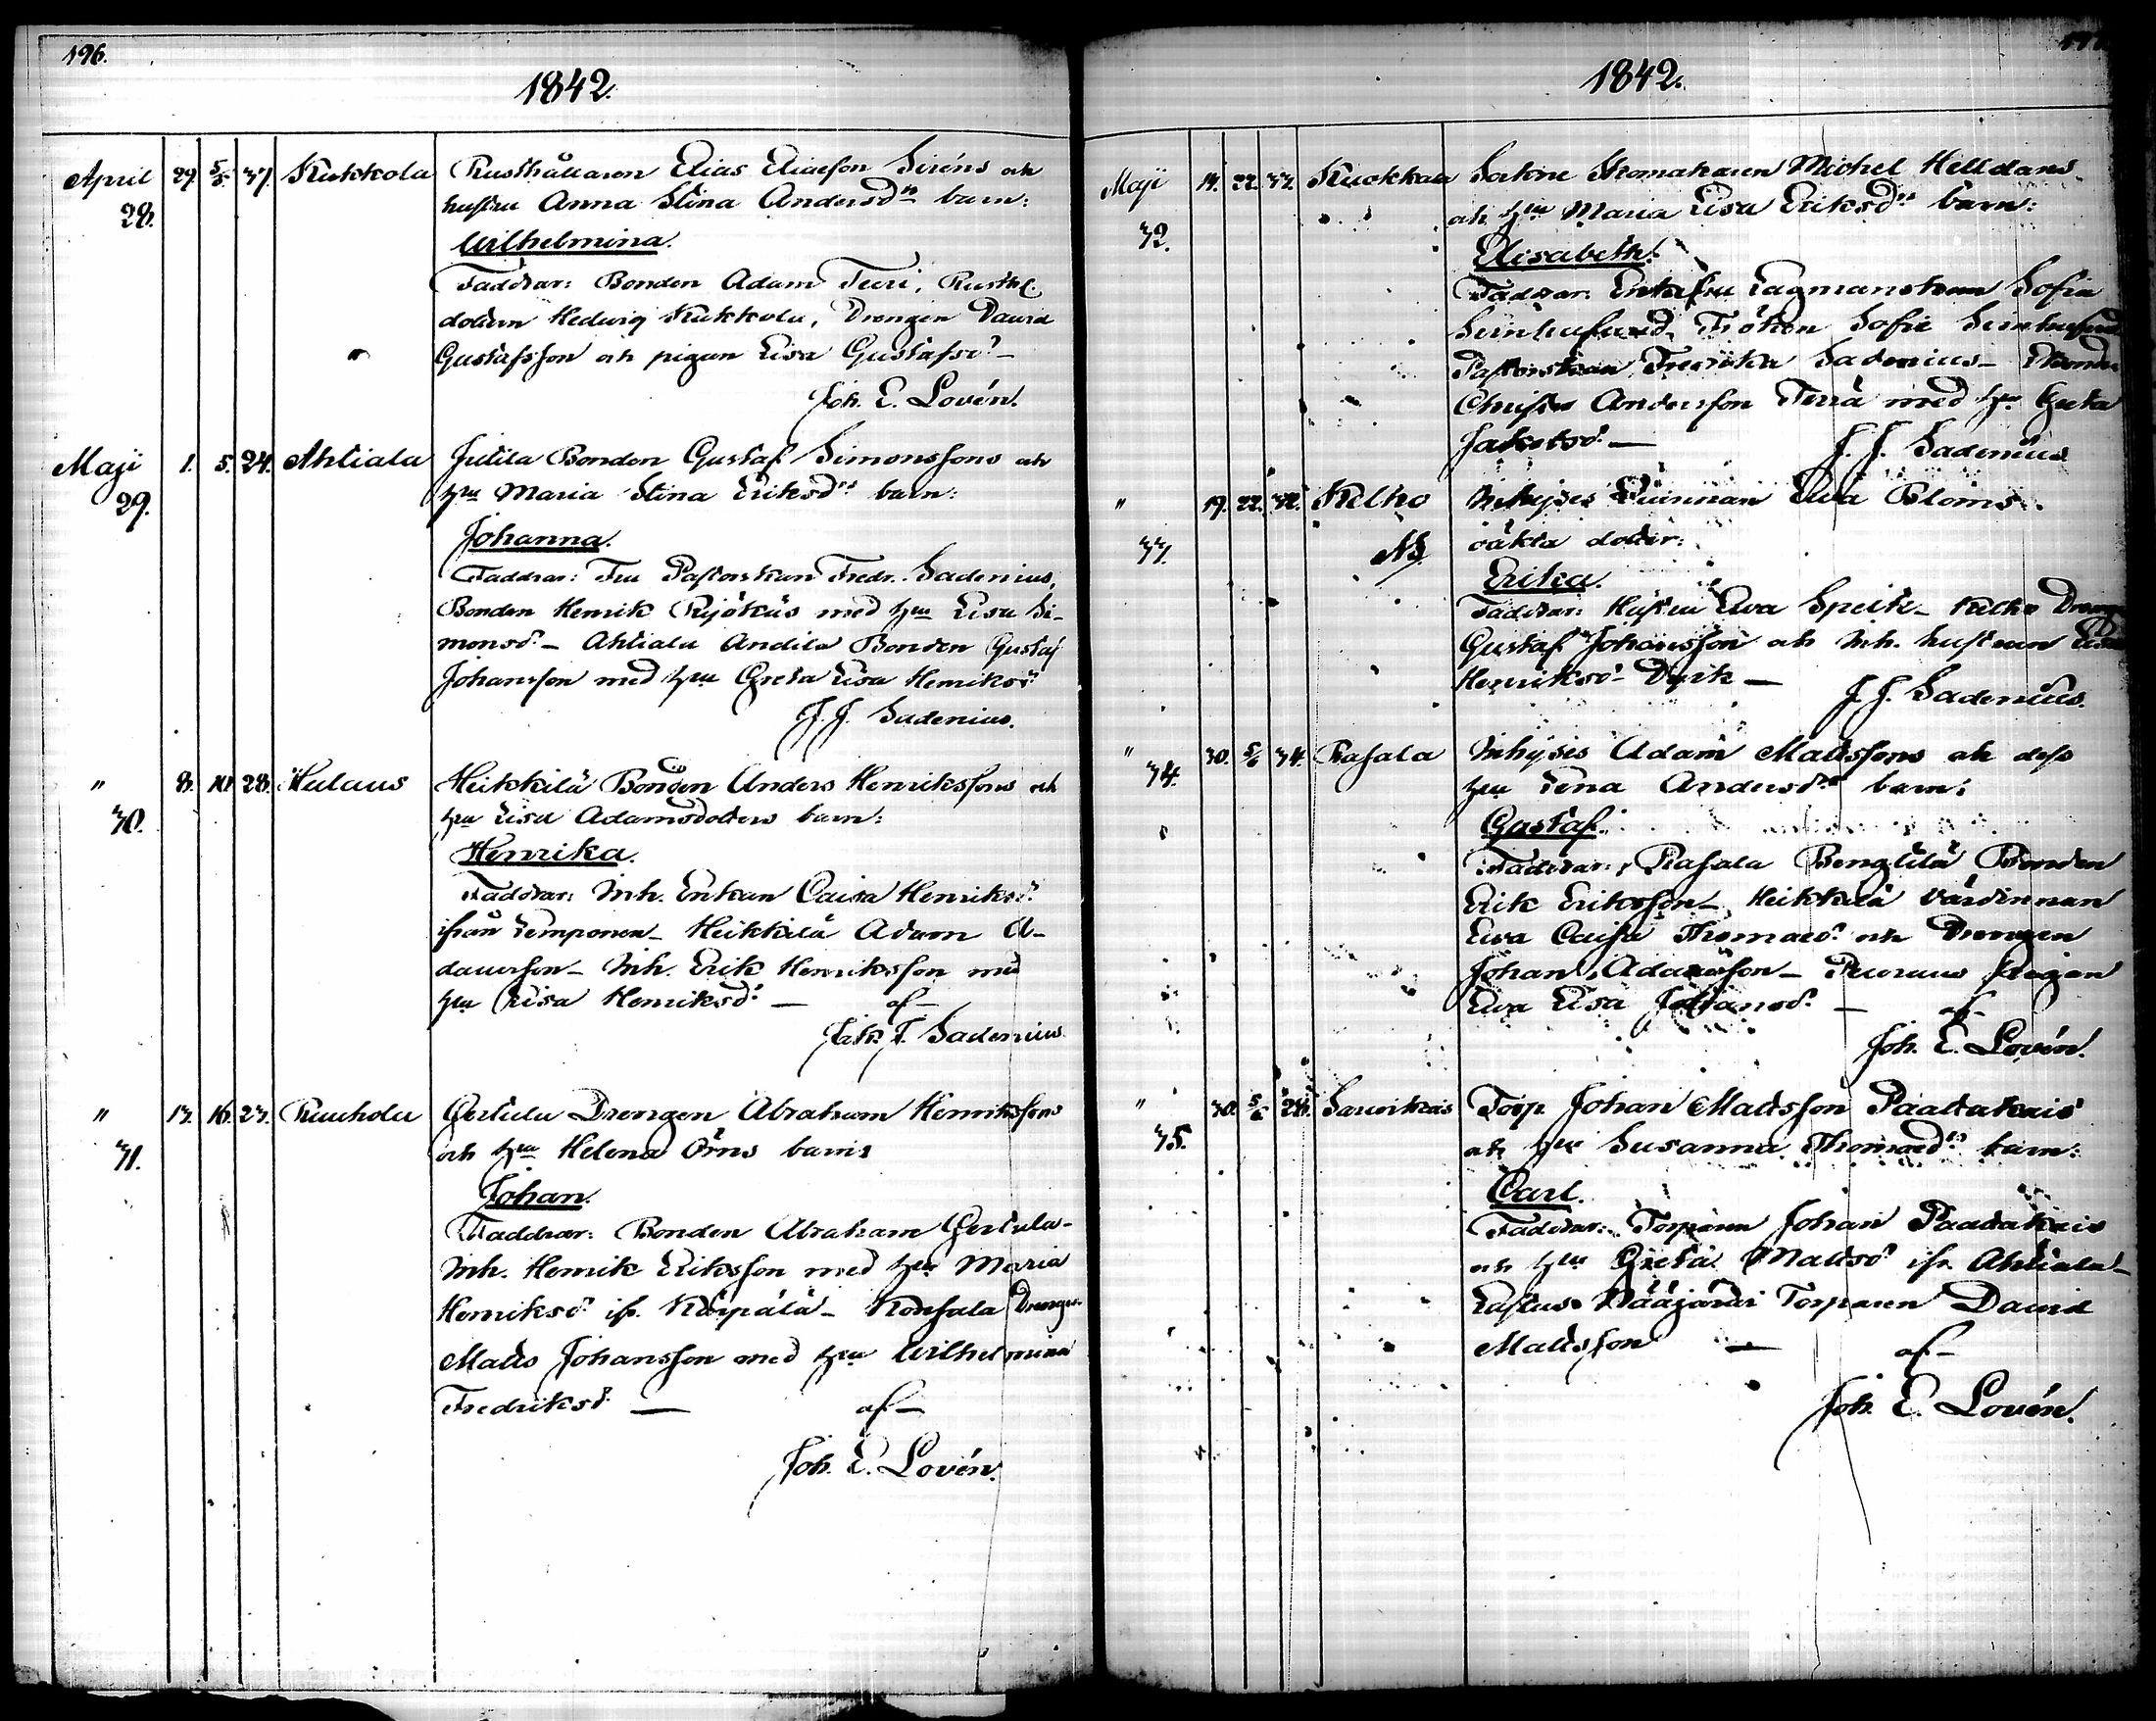 196.
1842.
April 29. 5/5. 37. Kukkola Rusthållaren Elias Eliæson Siréns och
28. hustru Anna Stina Andersd:rs barn:
Wilhelmina.
Faddrar: Bonden Adam Teuri, Rusth.
dottern Hedwig Kukkola, Drengen David
Gustafsson och pigan Lisa Gustafsd:r
Joh. E. Lovén.
Maji 1. 5. 24. Ahtiala Juttila Bonden Gustaf Simonssons och
29. h:u Maria Stina Eriksd:rs barn:
Johanna.
Faddrar: Fru Pastorskan Fredr. Sadenius,
Bonden Henrik Rjökäs med h:u Lisa Si-
monsd:r – Ahtiala Andila Bonden Gustaf
Johansson med h:u Greta Lisa Henriksd:r
J. J. Sadenius.
" 8. 10. 28. Hulaus Heikkilä Bonden Anders Henrikssons och
30. h:u Lisa Adamsdotters barn:
Henrika.
Faddrar: Inh. Enkan Caisa Henriksd:r
ifrån Temponen – Heikkilä Adam A-
damsson – Inh. Erik Henriksson med
h:u Lisa Henriksd:r — af –
Jak. J. Sadenius.
" 13. 16. 23. Ruuhola Qertula Drengen Abraham Henrikssons
31. och h:u Helena Örns barn:
Johan.
Faddrar: Bonden Abraham Qertula –
Inh. Henrik Eriksson med h:u Maria
Henriksd:r ifr. Kärpälä – Konsala Drengen
Matts Johansson med h:u Wilhelmina
Fredriksd:r — af –
Joh. E. Lovén.
1842.
Maji 14. 22. 33. Kuokkala Michel Helldans
32. och h:u Maria Lisa Eriksd:rs barn:
Elisabeth.
Faddrar: Enkefru Lagmanskan Sofia
Fröken Sofie
Pastorskan Fredrika Sadenius –
Andersson Terrä med h:u Greta
Jakobsd:r — J. J. Sadenius
" 19. 22. 32. Kelho Inhyses Qvinnan Eva Bloms
33. NB oäkta dotter:
Erika.
Faddrar: Hustru Eva Speik – Kelho Drengen
Gustaf Johansson och Inh. hustrun
Henriksd:r Dyrk — J. J. Sadenius.
" 30. 5/6 34. Rasala Inhyses Adam Mattssons och dess
34. h:u Lena Andersd:rs barn:
Gustaf.
Faddrar: Rasala Bengtilä Bonden
Erik Eriksson – Heikkilä värdinnan
Eva Caisa Thomasd:r och Drengen
Johan Adamsson – Pigan
Eva Lisa Johansd:r — af –
Joh. E. Lovén.
" 30. 5/6 26. Sarvikas Torp. Johan Mattsson Paatakais
35. och h:u Susanna Thomasd:rs barn:
Carl.
Faddrar: Torparen Johan Paatakais
och h:u Greta Mattsd:r ifr. Ahtiala –
Lastus Wääjärvi Torparen David
Mattsson — af –
Joh. E. Lovén.